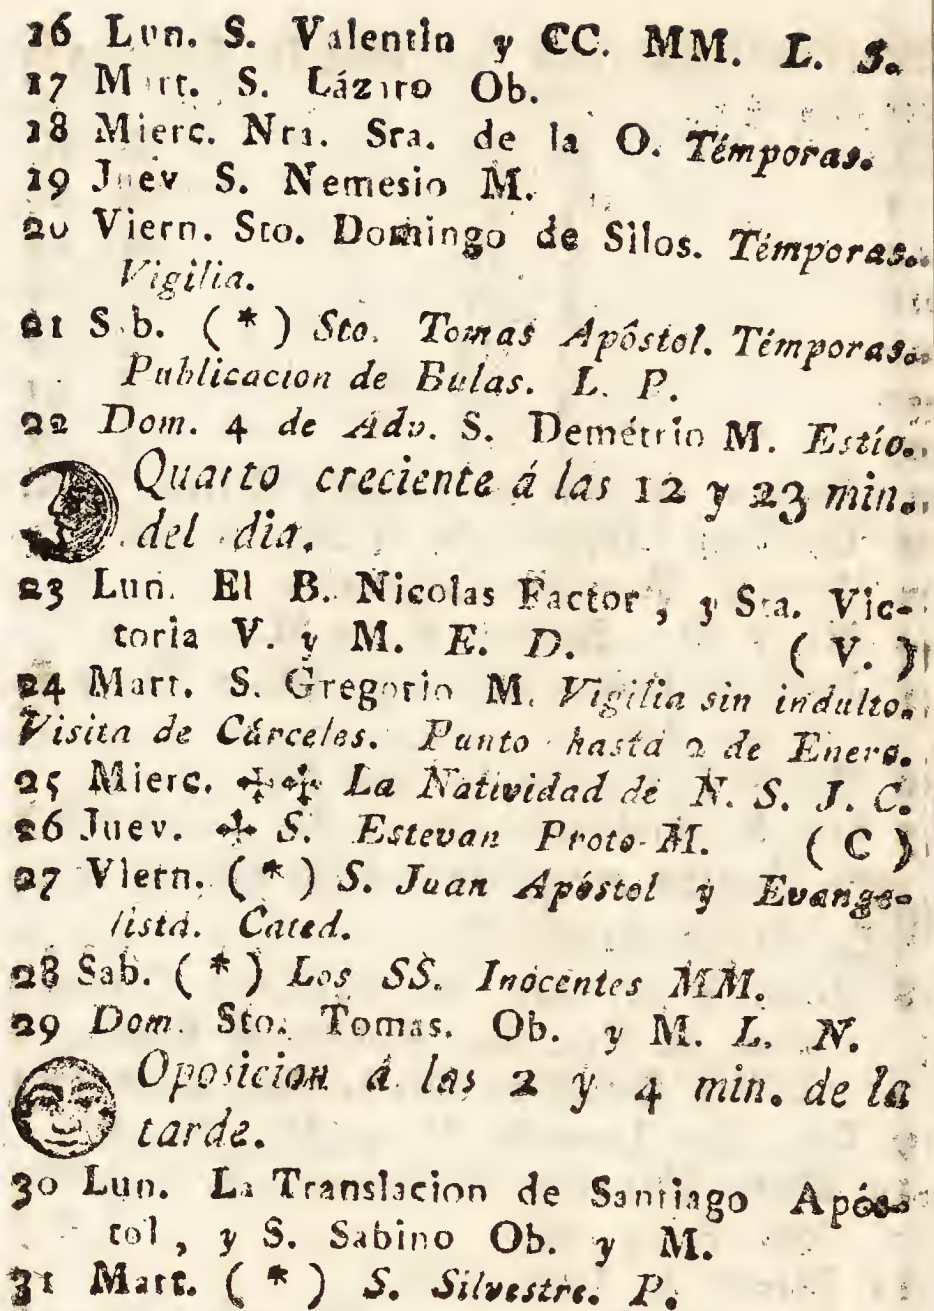 16 Lun. S. Valentin y CC. MM. L. S.
17 Mart. S. Lázaro Ob.
18 Mierc. Nra. Sra. de la O. Témporas.
19 Juev S. Nemesio M.
20 Viern. Sto. Domingo de Silos. Témporas.
Vigilia.
21 Sab. ( * ) Sto. Tomas Apóstol. Témporas.
Publicacion de Bulas. L. P.
22 Dom. 4 de Adv. S. Demétrio M. Estío.
Quarto creciente á las 12 y 23 min.
del dia.
23 Lun. El B. Nicolas Factor, y Sta. Vic-
toria V. y M. E. D. ( V. )
24 Mart. S. Gregorio M. Vigilia sin indulto.
Visita de Cárceles. Punto hasta 2 de Enero.
25 Mierc. ✠✠ La Natividad de N. S. J. C.
26 Juev. ✠ S. Estevan Proto-M. ( C )
27 Viern. ( * ) S. Juan Apóstol y Evange-
lista. Cated.
28 Sab. ( * ) Los SS. Inocentes MM.
29 Dom. Sto. Tomas. Ob. y M. L. N.
Oposicion á las 2 y 4 min. de la
tarde.
30 Lun. La Translacion de Santiago Após-
tol, y S. Sabino Ob. y M.
31 Mart. ( * ) S. Silvestre. P.